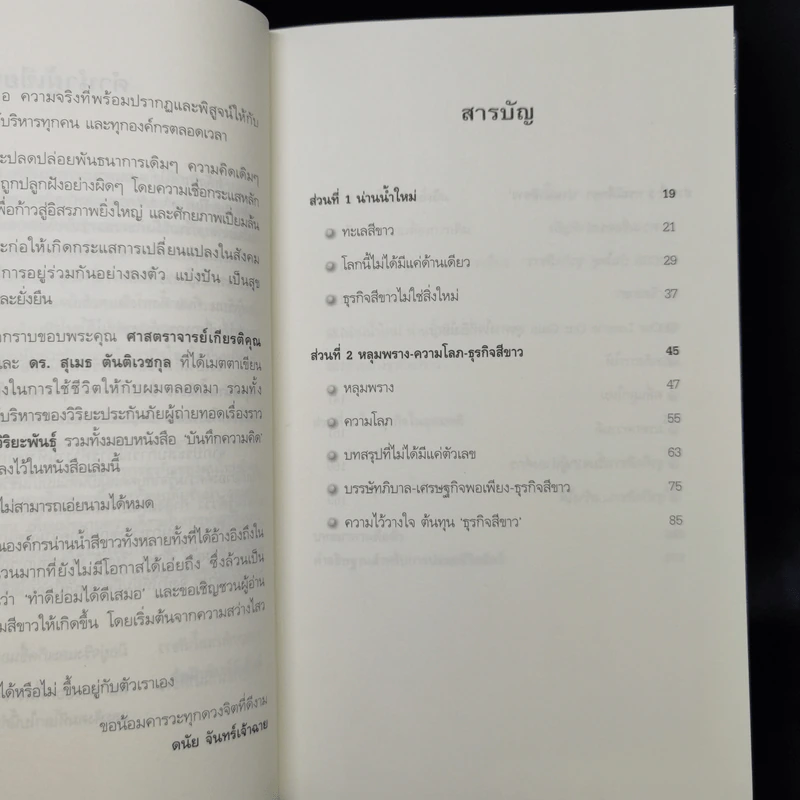 อ ความจริงที่พร้อมปรากฏและพิสูจน์ให้กับ
บริหารทุกคน และทุกองค์กรตลอดเวลา
ะปลดปล่อยพันธนาการเดิมๆ ความคิดเดิมๆ
ถูกปลูกฝังอย่างผิดๆ โดยความเชื่อกระแสหลัก
พื่อก้าวสู่อิสรภาพยิ่งใหญ่ และศักยภาพเปี่ยมล้น
ะก่อให้เกิดกระแสการเปลี่ยนแปลงในสังคม
การอยู่ร่วมกันอย่างลงตัว แบ่งปัน เป็นสุข
ละยั่งยืน
กราบขอบพระคุณ ศาสตราจารย์เกียรติคุณ
และ ดร. สุเมธ ตันติเวชกุล ที่ได้เมตตาเขียน
งในการใช้ชีวิตให้กับผมตลอดมา รวมทั้ง
บริหารของวิริยะประกันภัยผู้ถ่ายทอดเรื่องราว
วิริยะพันธุ์ รวมทั้งมอบหนังสือ 'บันทึกความคิด'
ลงไว้ในหนังสือเล่มนี้
ไม่สามารถเอ่ยนามได้หมด
นองค์กรน่านน้ำสีขาวทั้งหลายทั้งที่ได้อ้างอิงถึงใน
วนมากที่ยังไม่มีโอกาสได้เอ่ยถึง ซึ่งล้วนเป็น
ว่า 'ทำดีย่อมได้ดีเสมอ' และขอเชิญชวนผู้อ่าน
มสีขาวให้เกิดขึ้น โดยเริ่มต้นจากความสว่างไสว
ได้หรือไม่ ขึ้นอยู่กับตัวเราเอง
ขอน้อมคารวะทุกดวงจิตที่ดีงาม
ดนัย จันทร์เจ้าฉาย
สารบัญ
ส่วนที่ 1 น่านน้ำใหม่ 19
ทะเลสีขาว 21
โลกนี้ไม่ได้มีแค่ด้านเดียว 29
ธุรกิจสีขาวไม่ใช่สิ่งใหม่ 37
ส่วนที่ 2 หลุมพราง-ความโลภ-ธุรกิจสีขาว 45
หลุมพราง 47
ความโลภ 55
บทสรุปที่ไม่ได้มีแค่ตัวเลข 63
บรรษัทภิบาล-เศรษฐกิจพอเพียง-ธุรกิจสีขาว 75
ความไว้วางใจ ต้นทุน 'ธุรกิจสีขาว' 85